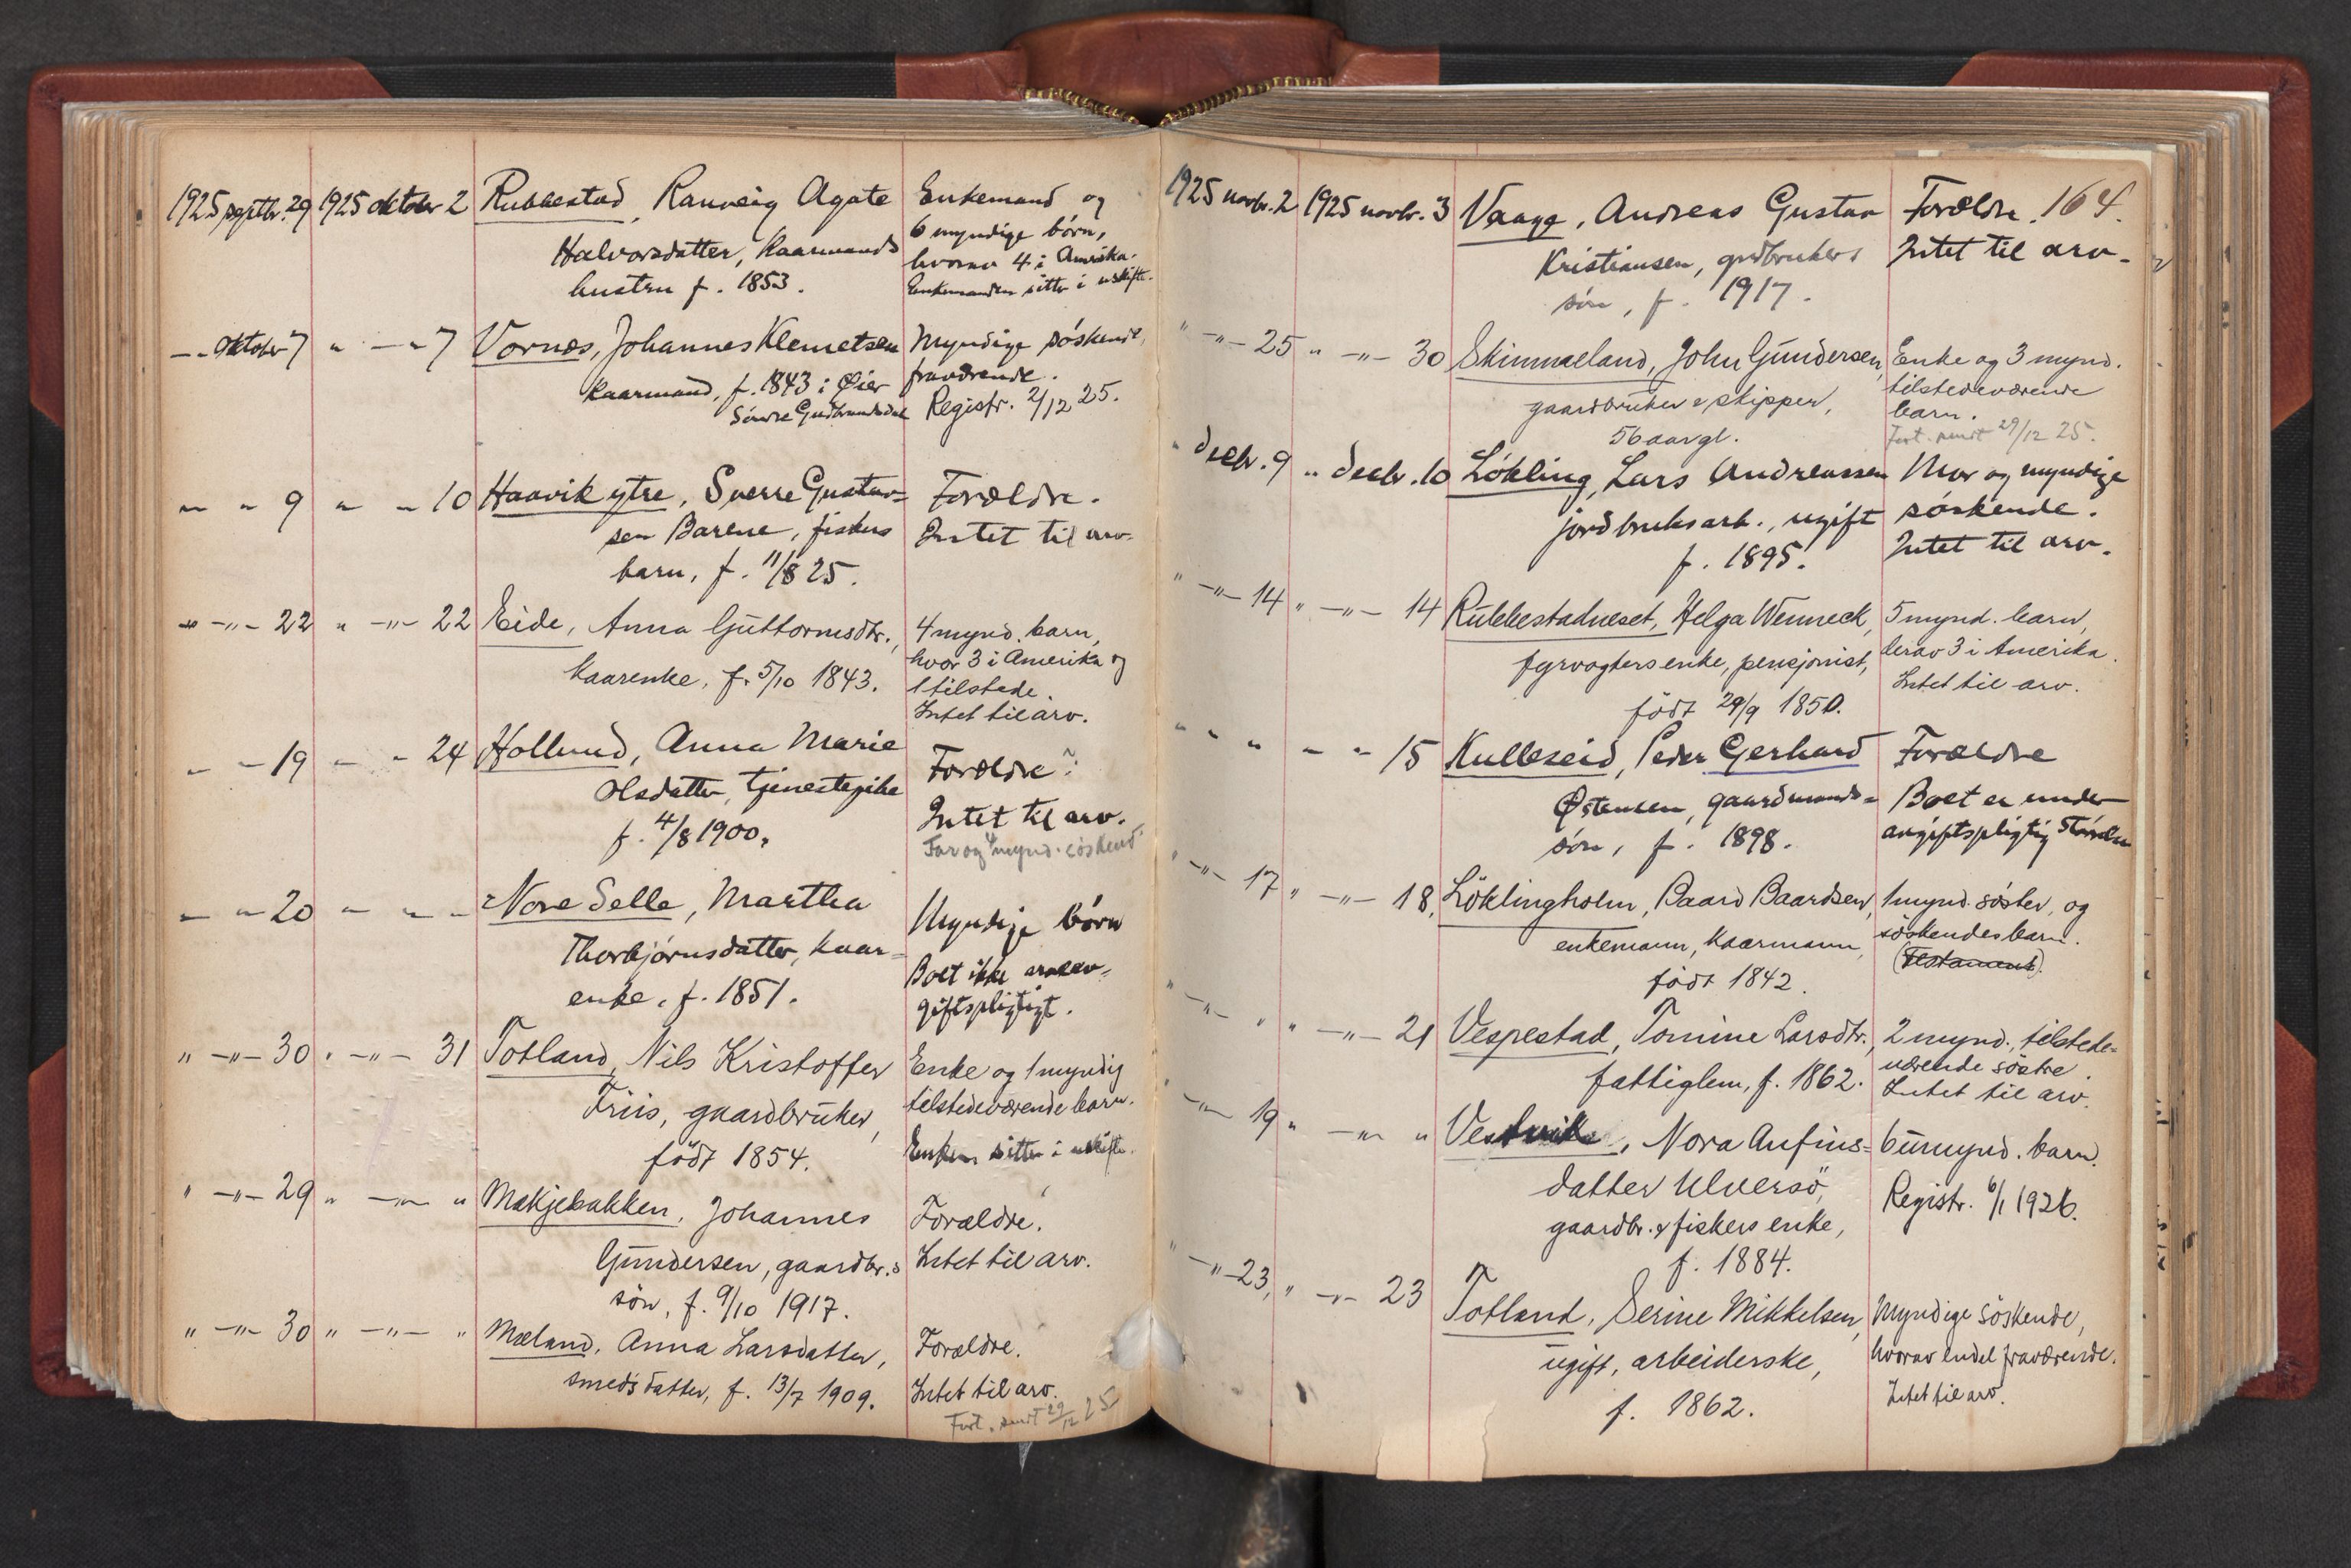 1925 septbr. 29 1925 oktober 2 Rubbestad, Ranveig Agate Enkemand og
Halvorsdatter, kaarmands 6 myndige børn,
hustru f. 1853. hvorav 4 i Amerika.
Enkemanden sitter i uskifte.
-„- Oktober 7 „ -„- 7 Vornes, Johannes Klemetsen Myndige søskende,
kaarmand, f. 1843 i Øier fraværende.
Søndre Gudbrandsdal Registr. 2/12 25.
„ „ 9 „ „ 10 Haavik ytre, Sverre Gustav= Forældre.
sen Barene, fiskers Intet til arv.
barn, f. 11/8 25.
„ -„- 22 „ -„- 22 Eide, Anna Guttormsdtr., 4 mynd. barn,
kaarenke, f. 5/10 1843. hvor 3 i Amerika og
1 tilstede.
Intet til arv.
„ „ 19 „ „ 24 Hollund, Anna Marie Forældre
Olsdatter, tjenestepike Intet til arv.
f. 4/8 1900. Far og 4 mynd. søskend
„ „ 20 „ „ „ Nore Selle, Martha Myndige børn
Thorbjørnsdatter, kaar= Boet ikke arveav=
enke, f. 1851. giftspligtigt.
„ -„- 30 „ -„- 31 Totland, Nils Kristoffer Enke og 1 myndig
Friis, gaardbruker, tilstedeværende barn.
født 1854. Enken sitter i uskifte.
„ -„- 29 „ -„- „ Mækjebakken, Johannes Forældre.
Gundersen, gaardbr.s Intet til arv.
søn, f. 9/10 1917.
„ -„- 30 „ -„- „ Mæland, Anna Larsdatter, Forældre.
smeds datter, f. 13/7 1909. Intet til arv.
Fort. sendt 29/12 25
1925 novbr. 2 1925 novbr. 3 Vaage, Andreas Gustav Forældre. 164.
Kristiansen, grdbrukers Intet til arv.
søn, f. 1917.
„ -„- 25 „ -„- 30 Skimmeland, John Gundersen, Enke og 3 mynd.
gaardbruker & skipper, tilstedeværende
56 aar gl. barn.
Fort. sendt 29/12 25.
„ decbr. 9 „ decbr. 10 Løkling, Lars Andreassen Mor og myndige
jordbruksarb., ugift søskende.
f. 1895. Intet til arv.
„ -„- 14 „ -„- 14 Rubbestadneset, Helga Wenneck, 5 mynd. barn,
fyrvogters enke, pensjonist, derav 3 i Amerika.
født 29/9 1850. Intet til arv.
„ „ „ „ „ 15 Kulleseid, Peder Gerhard Forældre
Østensen, gaardmands= Boet er under
søn, f. 1898. avgiftspligtig størrelse
„ -„- 17 „ -„- 18, Løklingholm, Baard Baardsen, 1 mynd. søster, og
enkemann, kaarmann, søskendesbarn.
født 1842. (Testament).
„ -„- „ „ -„- 21 Vespestad, Tomine Larsdtr., 2 mynd., tilstede=
fattiglem, f. 1862. værende søstre.
Intet til arv.
„ -„- 19 „ -„- „ Vestvik, Nora Anfins= 6 umynd. barn.
datter Ulversö, Registr. 6/1 1926.
gaardbr. & fiskers enke,
f. 1884.
„ -„- 23, „ -„- 23 Totland, Serine Mikkelsen, Myndige søskende,
ugift, arbeiderske, hvorav endel fraværende.
f. 1862. Intet til arv.